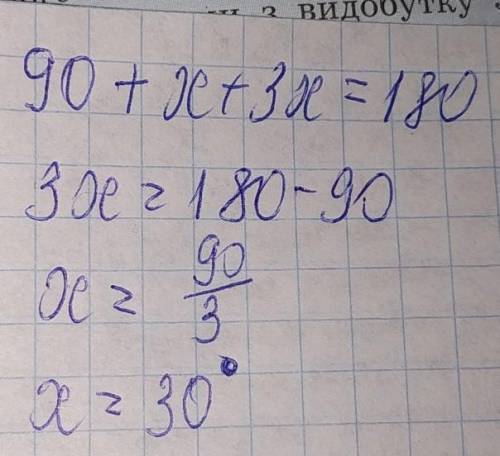 з видобутку
90 + x + 3x = 180
3x = 180 - 90
x = 90/3
x = 30°